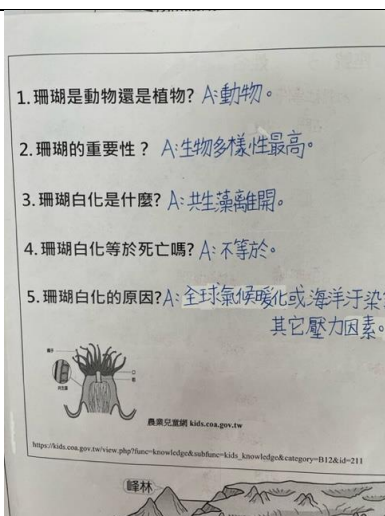 1.珊瑚是動物還是植物? A:動物。
2.珊瑚的重要性? A:生物多樣性最高。
3.珊瑚白化是什麼? A:共生藻離開。
4.珊瑚白化等於死亡嗎? A:不等於。
5.珊瑚白化的原因?A:全球氣候暖化或海洋汙染
其它壓力因素。
農業兒童網 kids.coa.gov.tw
https://kids.coa.gov.tw/view.php?func=knowledge&subfunc=kids_knowledge&category=B12&id=211
峰林